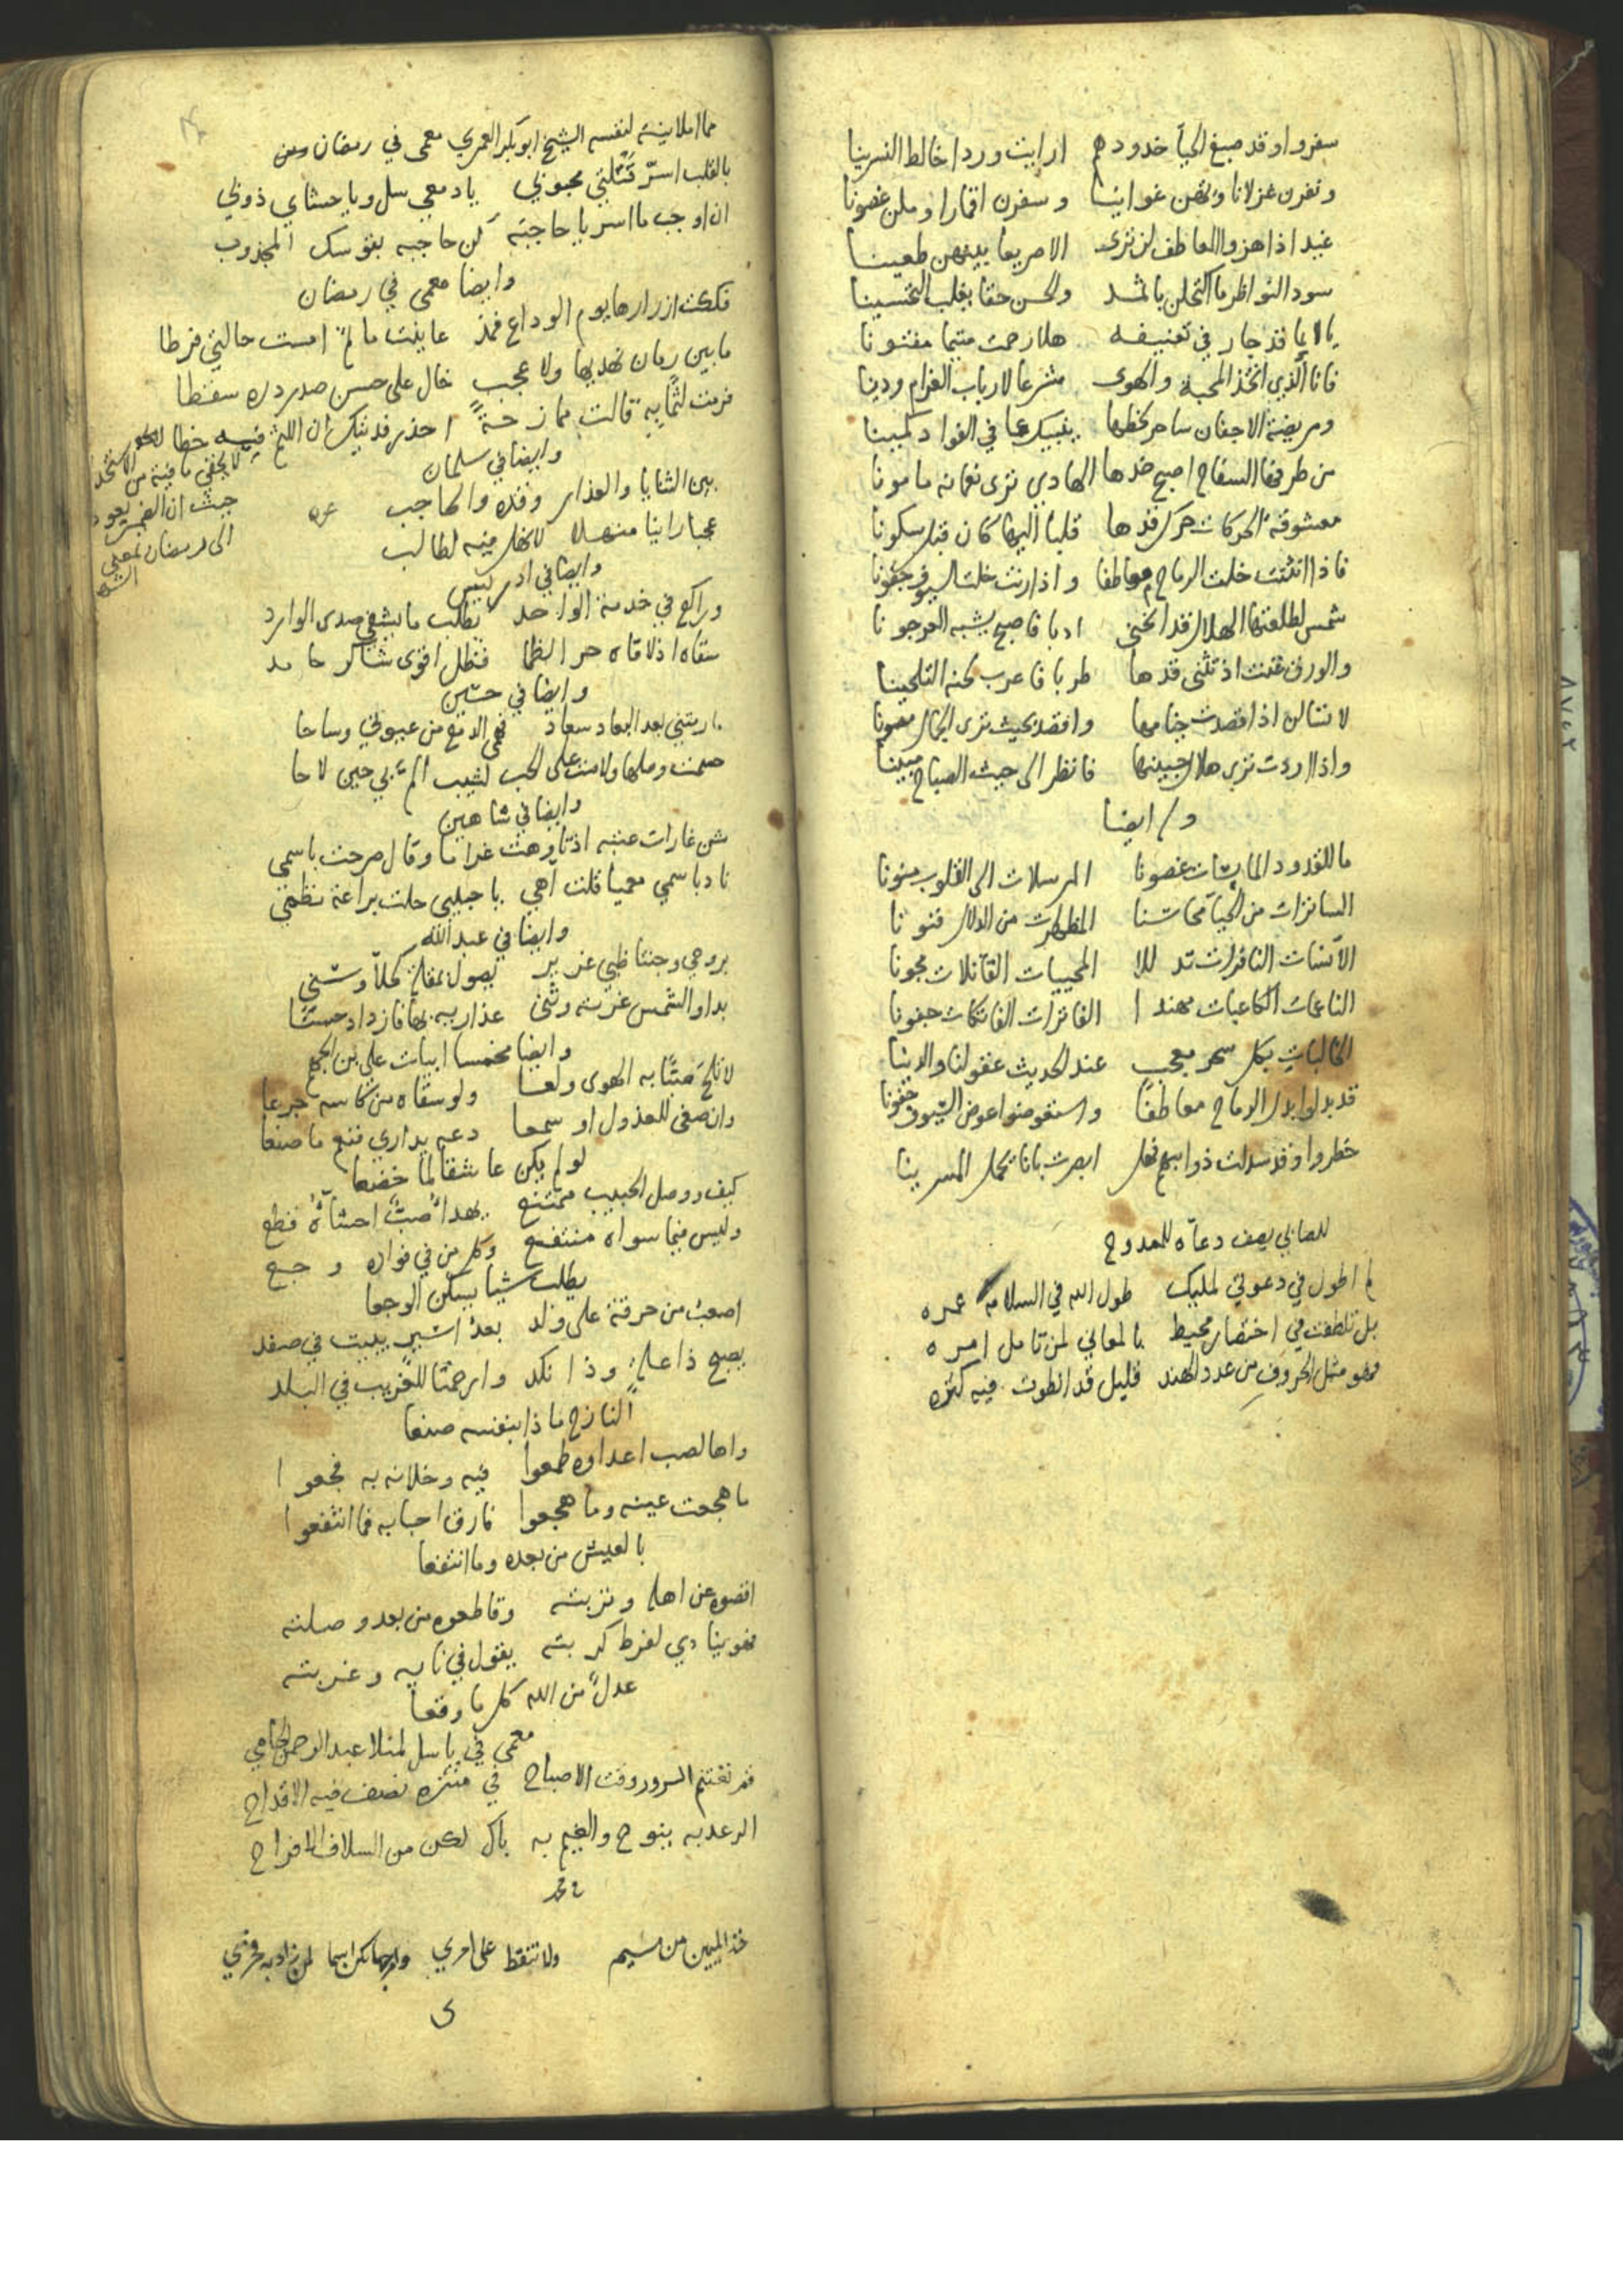 سفروا وقد صبغ الحيا خدودهم ارايت وردا خالط النسرينا
ونفرن غزلانا وغوانيا وسفرن اقمارا وملن غصونا
غيد اذا هزوا المعاطف لن ترى الا صريعا بينهن طعينا
سود النواظر ما اكتحلن باثمد والحسن حقا يغلب التحسينا
يا لايما قد جار في تعنيفه هلا رحمت متيما مفتونا
فانا الذي اتخذ المحبة والهوى شرعا لارباب الغرام ودينا
ومريضة الاجفان ساحر لحظها ينبيك عما في الفواد كمينا
من طرفها السفاح اصبح خدها الهادي ترى نعمانه مامونا
معشوقة الحركات حرك قدها قلبا اليها كان قبل سكونا
فاذا انثنت خلت الرماح معاطفا واذا رنت خلت السيوف جفونا
شمس لطلعتها الهلال قد انحنى ادبا فاصبح يشبه العرجونا
والورق غنت اذ تثنى قدها طربا فاعرب لحنه التلحينا
لا تسالن اذا قصدت خيامها واقصد بحيث ترى الجمال مصونا
واذا اردت ترى هلال جبينها فانظر الى حيث الصباح مبينا
وله ايضا
ما للقدود المايسات غصونا المرسلات الى القلوب منونا
السافرات من الحيا محاسنا المظهرات من الدلال فنونا
الآنسات النافرات تدللا المحييات القاتلات مجونا
الناعمات الكاعبات نهودا الفاترات الفاتكات جفونا
الخالبات بكل سحر معجب عند الحديث عقولنا والدينا
قد بدلوا بدل الرماح معاطفا واستعوضوا عوض السيوف جفونا
خطروا وقد سدلت ذوايبهم فقل ابصرت بانا يحمل النسرينا
للصابي يصف دعآه للممدوح
لم اطول في دعوتي لمليك طول الله في السلامة عمره
بل تلطفت في اختصار محيط بالمعاني لمن تامل امره
فهو مثل الحروف من عدد الهند قليل قد انطوت فيه كثره
مما املانيه لنفسه الشيخ ابو بكر العمري معمى في رمضان
بالقلب اسر قتلتي محبوبي يا دمعي سل ويا حشاي ذوبي
ان اوجب ما اسر يا حاجبه كن حاجبه بقوسك المجذوب
وايضا معمى في رمضان
فككت ازرارها يوم الوداع فمذ عاينت ما تم امست حالتي فرطا
ما بين رمان نهديها ولا عجب خال على حسن صدر دره سقطا
فرمت لثما به قالت ممازحة احذر فديتك ان اللثم فيه خطا
لا يخفى ما فيه من الاستخدام
حيث ان الضمير يعود
الى رمضان لمعنى
الشهر
وايضا في سلمان
بين الثنايا والعذار وقده والحاجب
عجبا راينا منهلا لا نهل فيه لطالب
وايضا في ادريس
وراكع في خدمة الواحد يطلب ما يشفي صدى الوارد
سقاه اذ لاقاه حر الظما فظل اقوى شاكر حامد
وايضا في حسين
ما رمتني بعد البعاد سعاد فهمى الدمع من عيوني وساحا
صمت وصلها ولامت على الحب لشيب الم بي حين لاحا
وايضا في شاهين
شن غارات عتبه اذ تاوهت غراما وقال صرحت باسمي
نادبا سمي معميا قلت آهي يا حبيبي حلت براعة نظمي
وايضا في عبد الله
بروحي وجنتا ظبي غرير يصول بمقلة كحلا وسني
بدا والشمس غرته وثنى عذاريه بها فازداد حسنا
وايضا مخمسا ابيات علي بن الجهم
لا تلح صبا به الهوى ولعا ولو سقاه من كاسه جرعا
وان صغى للعذول او سمعا دعه يداري فنعم ما صنعا
لو لم يكن عاشقا لما خضعا
كيف ووصل الحبيب ممتنع بهذا صب احشآه قطع
وليس فيما سواه منتفع وكل من في فواده وجع
يطلب شيا يسكن الوجعا
اصعب من حرقة على ولد بعد اسير يبيت في صفد
يصبح ذا علة وذا نكد وارحمتا للغريب في البلد
النازح ماذا بنفسه صنعا
واها لصب اعداوه طمعوا فيه وخلانه به فجعوا
ما هجعت عينه وما هجعوا فارق احبابه فما انتفعوا
بالعيش من بعده وما انتفعا
اقصوه عن اهله وتربته وقاطعوه من بعد وصلته
فهو ينادي لفرط كربته يقول في نايه وغربته
عدل من الله كل ما وقعا
معمى في باسل لمنلا عبد الرحمن الجامي
قم نغتنم السرور وقت الاصباح في منتزه نصف فيه الاقداح
الرعد به ينوح والغيم به باك لكن من السلاف الافراح
خذ الميمين من ميم ولا تنقط على امري